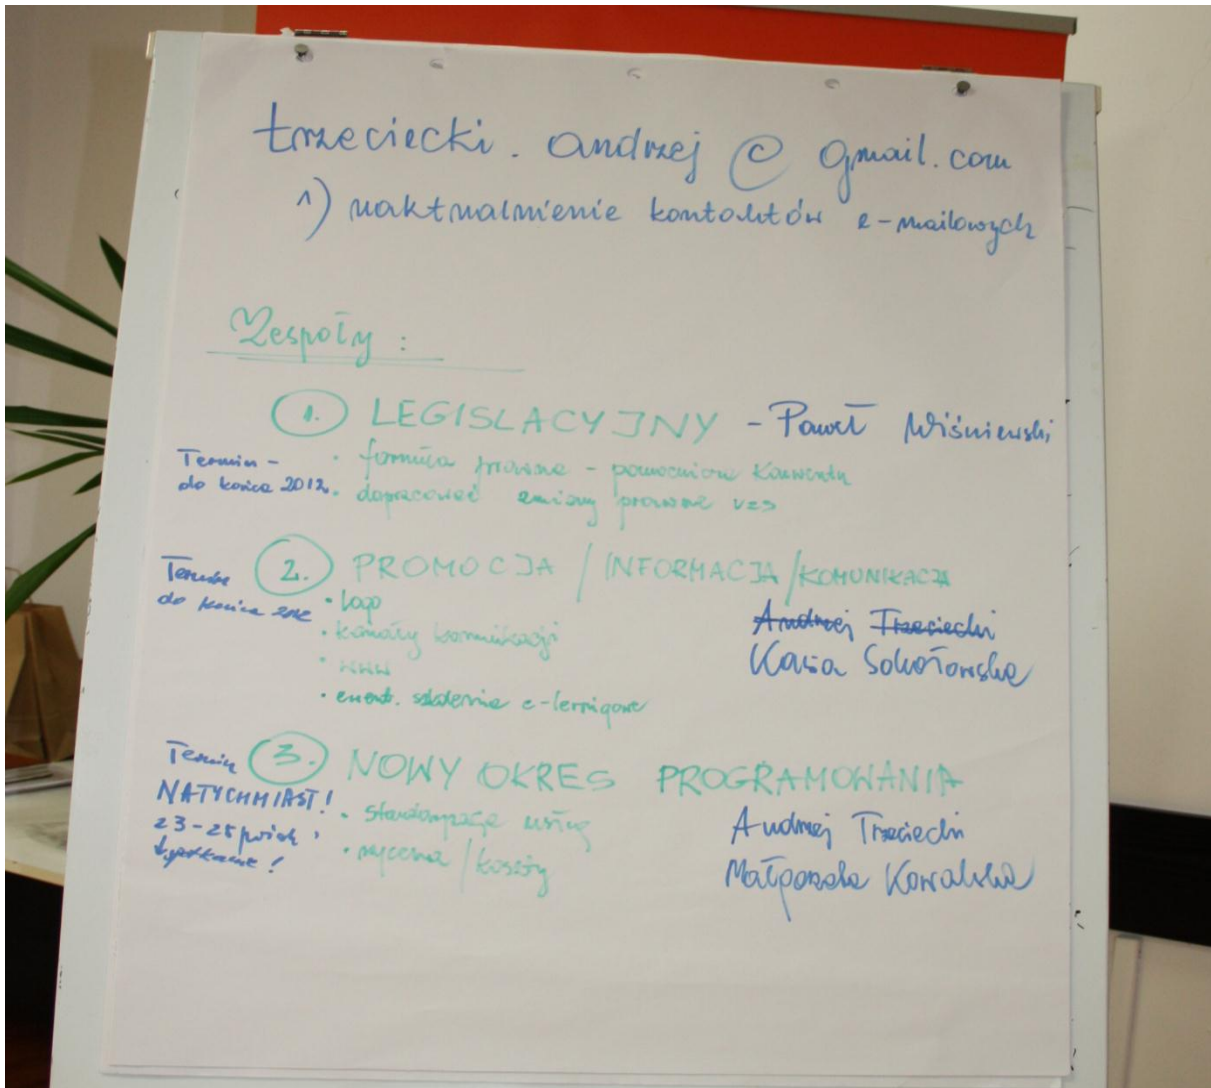 trzeciecki.andrzej@gmail.com
1) uaktualnienie kontaktów e-mailowych
Zespoły:
1. LEGISLACYJNY - Paweł Wiśniewski
Termin - do końca 2012r.
• formuła prawna - pomocnicza Konwentu
• dopracować zmiany prawne
2. PROMOCJA / INFORMACJA / KOMUNIKACJA
Termin do końca 2012
• logo
• kanały komunikacji
• www
• szkolenia e-lerningowe
Andrzej Trzeciecki
Kasia Sokołowska
3. NOWY OKRES PROGRAMOWANIA
Termin
NATYCHMIAST!
23-25
spotkanie!
• usług
• wycena / koszty
Andrzej Trzeciecki
Małgorzata Kowalska